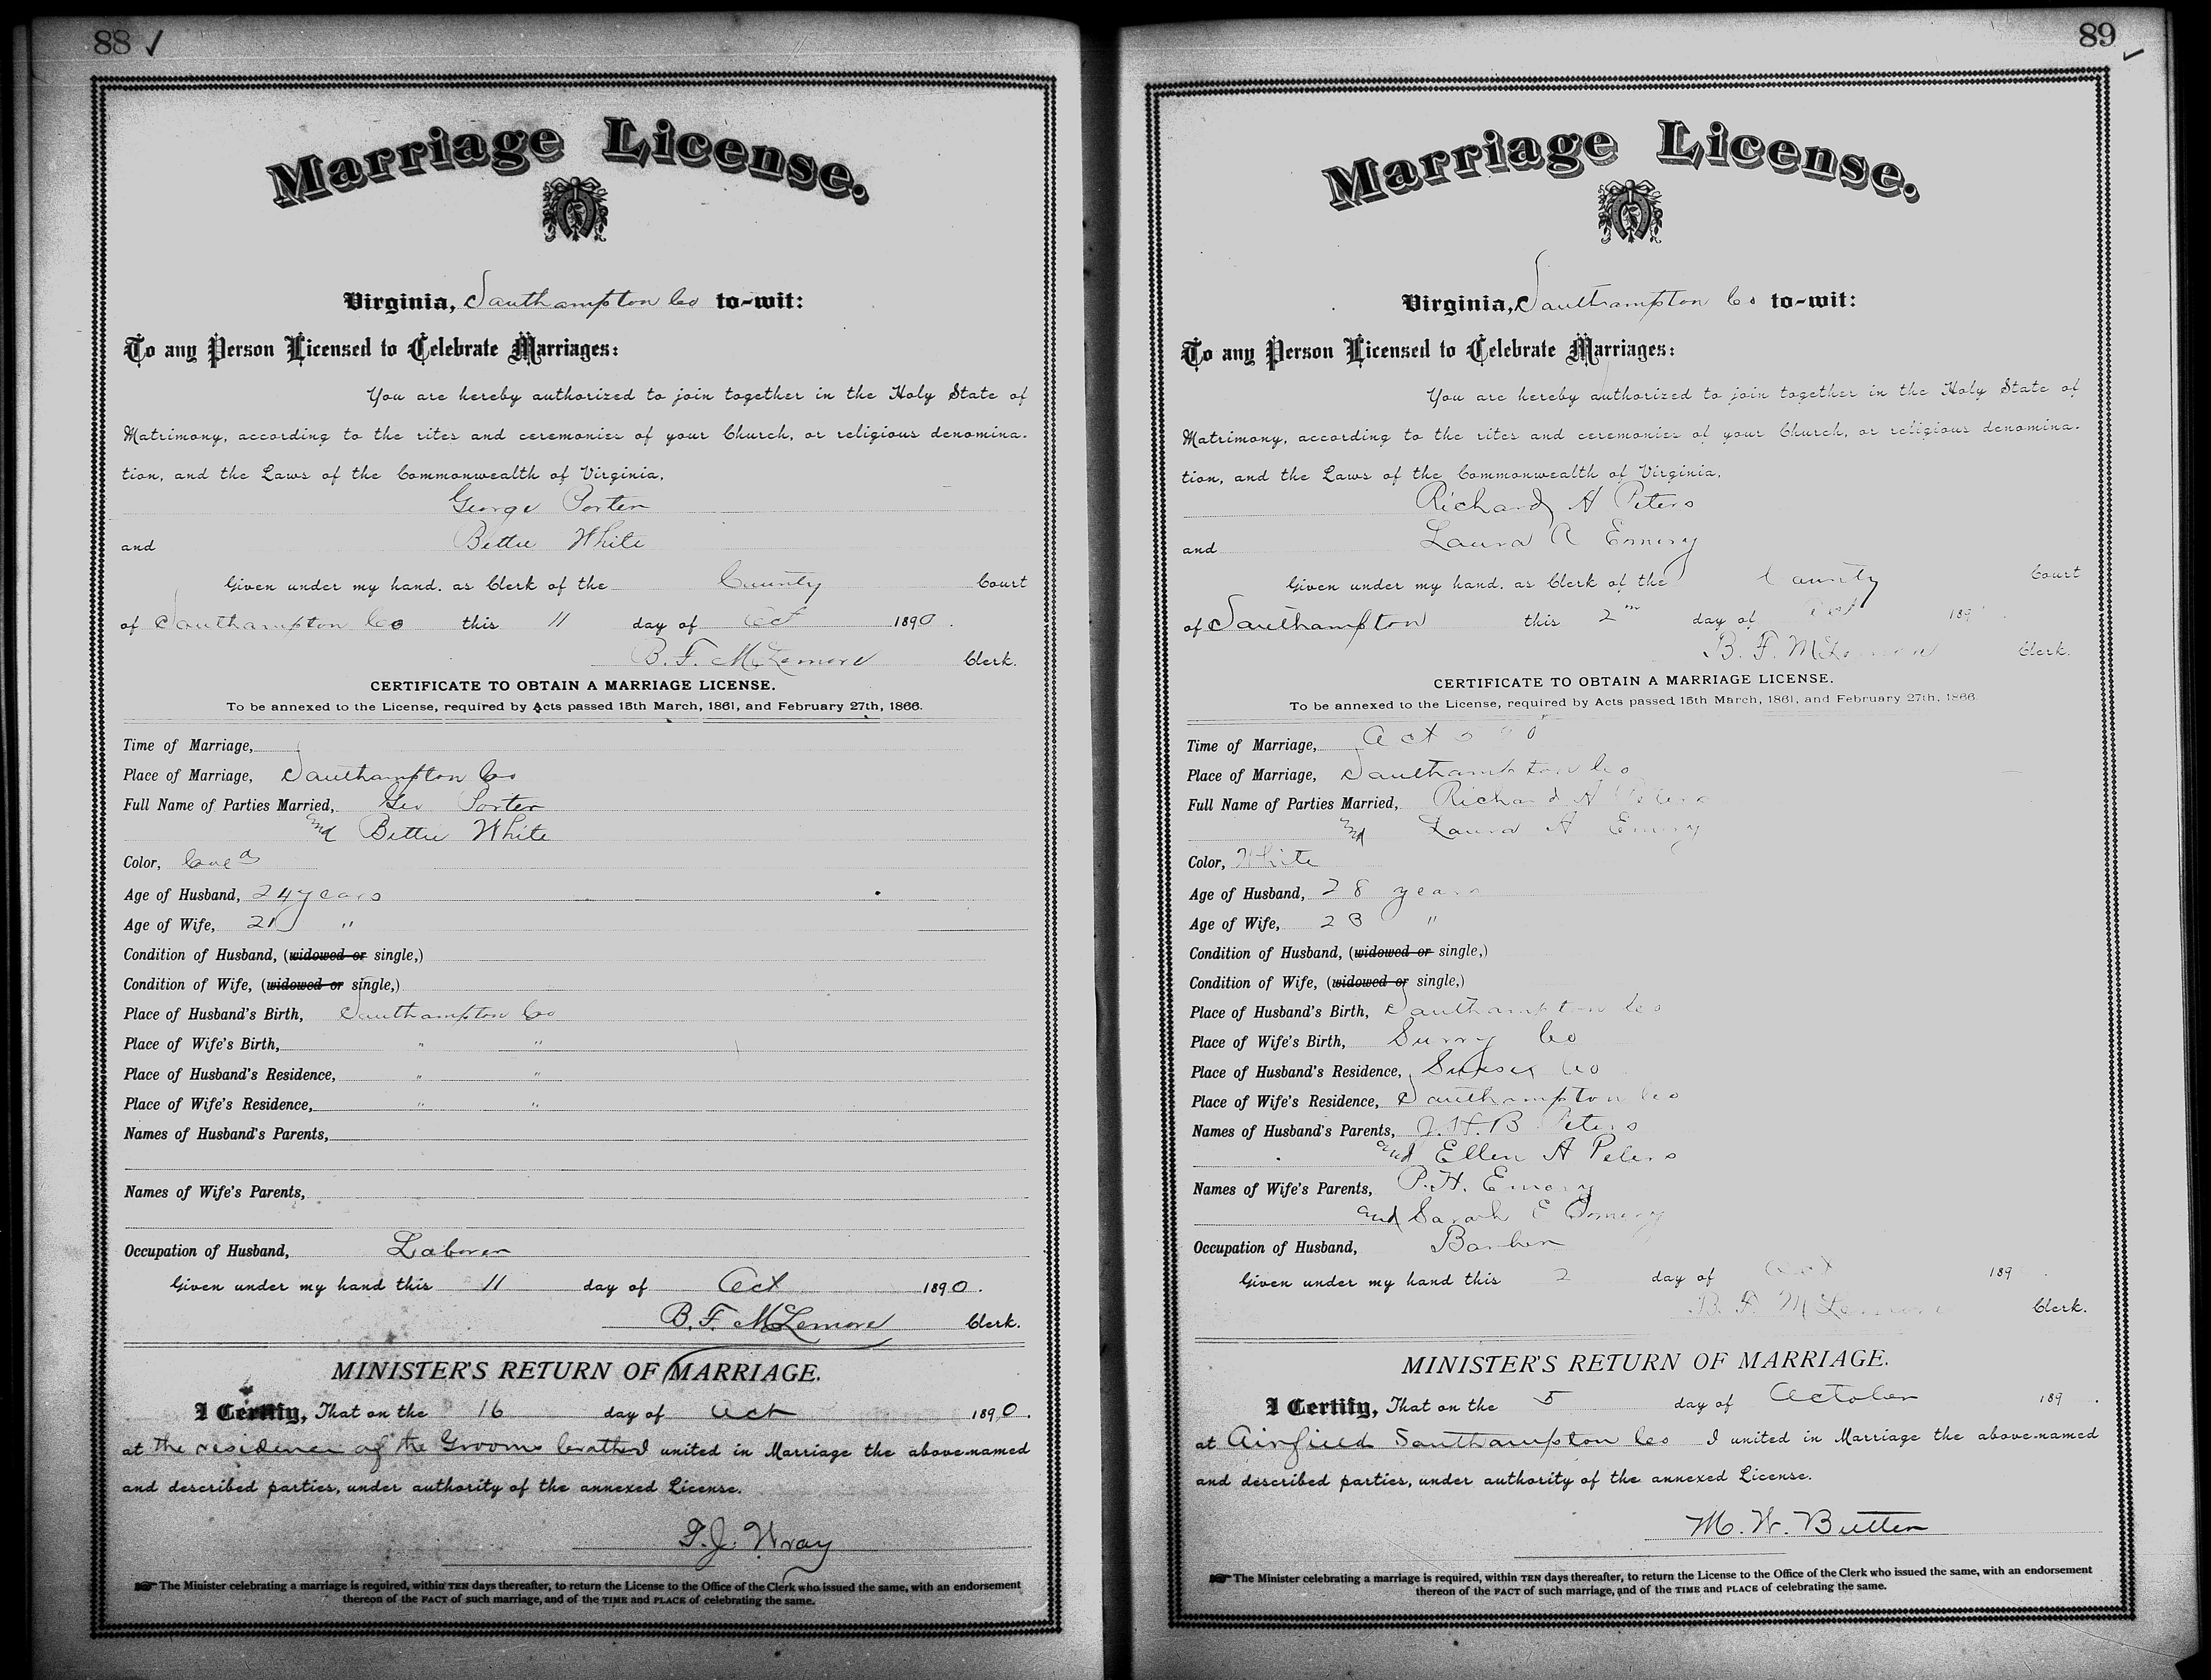 88 ✓
Marriage License.
Virginia, Southampton Co to-wit:
To any Person Licensed to Celebrate Marriages:
You are hereby authorized to join together in the Holy State of
Matrimony, according to the rites and ceremonies of your Church, or religious denomina-
tion, and the Laws of the Commonwealth of Virginia.
George Porter
and Bettie White
Given under my hand, as Clerk of the County Court
of Southampton Co this 11 day of Oct 1890.
B. F. McLemore Clerk.
CERTIFICATE TO OBTAIN A MARRIAGE LICENSE.
To be annexed to the License, required by Acts passed 15th March, 1861, and February 27th, 1866.
Time of Marriage,
Place of Marriage, Southampton Co
Full Name of Parties Married, Geo Porter
and Bettie White
Color, Col'd
Age of Husband, 24 years
Age of Wife, 21 "
Condition of Husband, (widowed or single,)
Condition of Wife, (widowed or single,)
Place of Husband's Birth, Southampton Co
Place of Wife's Birth, " "
Place of Husband's Residence, " "
Place of Wife's Residence, " "
Names of Husband's Parents,
Names of Wife's Parents,
Occupation of Husband, Laborer
Given under my hand this 11 day of Oct 1890.
B. F. McLemore Clerk.
MINISTER'S RETURN OF MARRIAGE.
I Certify, That on the 16 day of Oct 1890.
at the residence of the Grooms brother I united in Marriage the above-named
and described parties, under authority of the annexed License.
T. J. Wray
The Minister celebrating a marriage is required, within TEN days thereafter, to return the License to the Office of the Clerk who issued the same, with an endorsement
thereon of the FACT of such marriage, and of the TIME and PLACE of celebrating the same.
89 ✓
Marriage License.
Virginia, Southampton Co to-wit:
To any Person Licensed to Celebrate Marriages:
You are hereby authorized to join together in the Holy State of
Matrimony, according to the rites and ceremonies of your Church, or religious denomina-
tion, and the Laws of the Commonwealth of Virginia.
Richard H Peters
and Laura A Emery
Given under my hand, as Clerk of the County Court
of Southampton this 2 day of Oct 189
B. F. McLemore Clerk.
CERTIFICATE TO OBTAIN A MARRIAGE LICENSE.
To be annexed to the License, required by Acts passed 15th March, 1861, and February 27th, 1866.
Time of Marriage, Oct
Place of Marriage, Southampton Co
Full Name of Parties Married, Richard H Peters
and Laura A Emery
Color, White
Age of Husband, 28 years
Age of Wife, 23 "
Condition of Husband, (widowed or single,)
Condition of Wife, (widowed or single,)
Place of Husband's Birth, Southampton Co
Place of Wife's Birth, Surry Co
Place of Husband's Residence, Sussex Co
Place of Wife's Residence, Southampton Co
Names of Husband's Parents, J. H. B Peters
and Ellen A Peters
Names of Wife's Parents, P. H. Emory
and Sarah E Emery
Occupation of Husband,
Given under my hand this 2 day of Oct 189
B. F. McLemore Clerk.
MINISTER'S RETURN OF MARRIAGE.
I Certify, That on the 5 day of October 189 .
at Airfield Southampton Co I united in Marriage the above-named
and described parties, under authority of the annexed License.
M. W. Butler
The Minister celebrating a marriage is required, within TEN days thereafter, to return the License to the Office of the Clerk who issued the same, with an endorsement
thereon of the FACT of such marriage, and of the TIME and PLACE of celebrating the same.